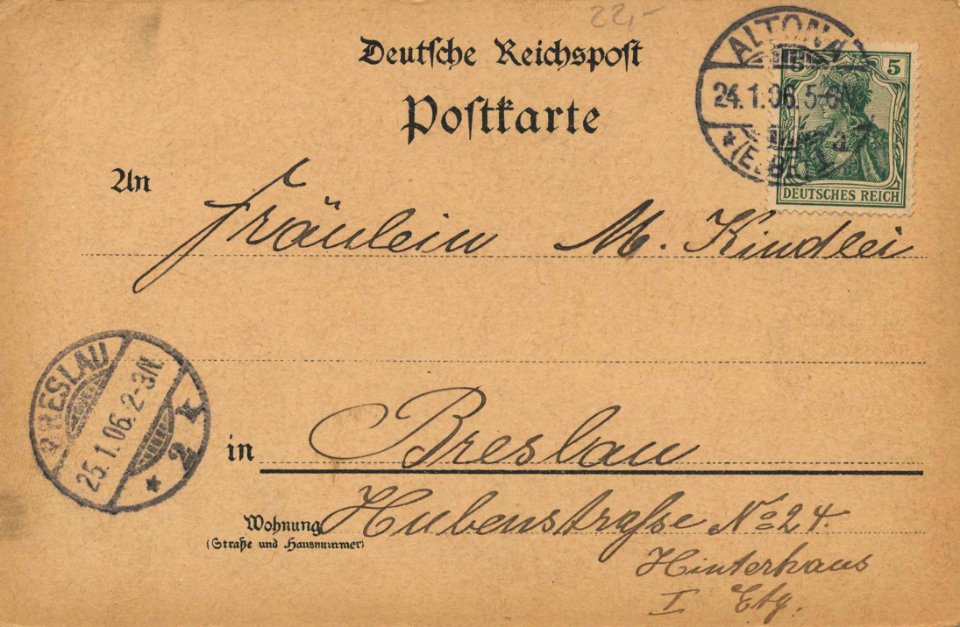 22,-
Deutsche Reichspost
Postkarte
ALTONA
24.1.06.5-6N.
* (ELBE) 1
5
DEUTSCHES REICH
An
Fräulein M. Kindlei
BRESLAU
25.1.06.2-3N.
* 2 k
in Breslau
Wohnung Hubenstraße No 24.
(Straße und Hausnummer)
Hinterhaus
I Etg.